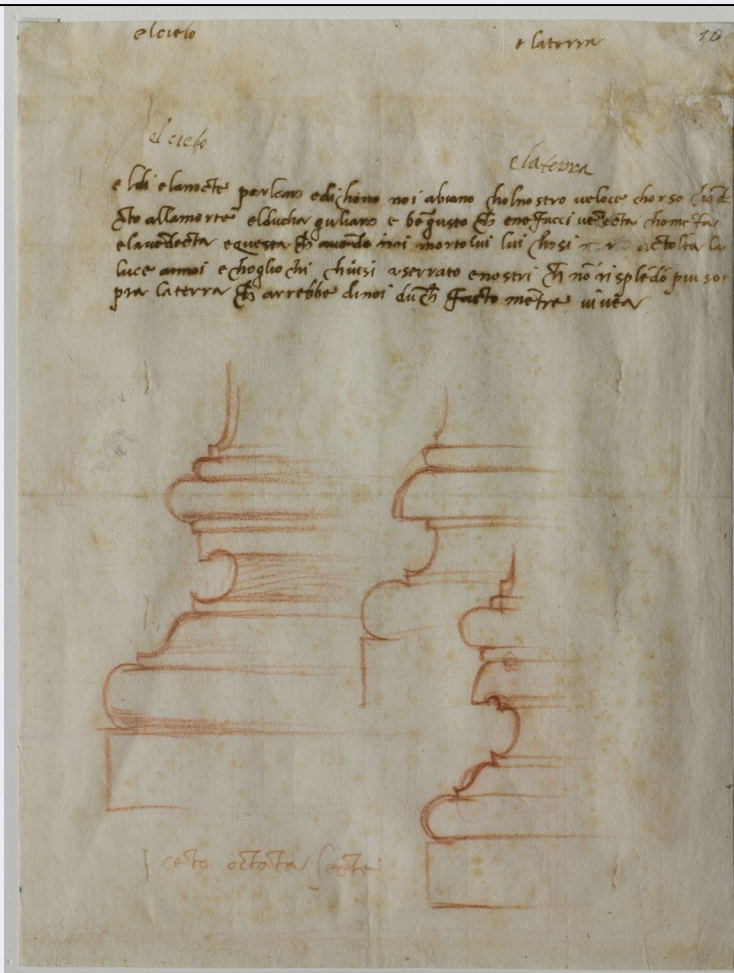 el cielo e la terra 10
el cielo e la terra
e ldi e lanocte parlano e dichono noi abiano chol nostro veloce chorso chōdo
cto alla morte el ducha guliano e bē gusto cħ e ne facci vēdecta chome fa
e la vēdecta e questa cħ avendo noi morto lui lui chosi morto a tolta la
luce a noi e chogli ochi chiusi a serrato e nostri cħ nō risplēdō piu so
pra la terra cħ arrebbe di noi dūcħ facto mētre vivea
cēto octāta secte